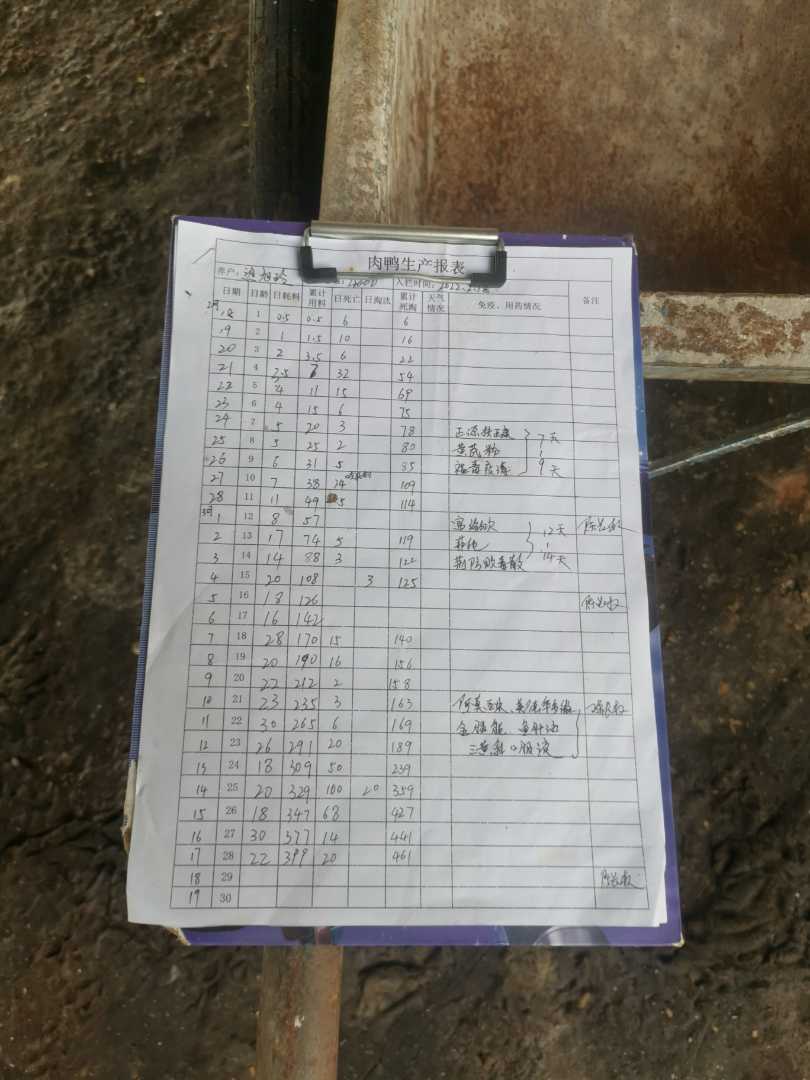 肉鸭生产报表
养户： 入栏时间：2022.2.
日期 日龄 日耗料 累计用料 日死亡 日淘汰 累计死淘 天气情况 免疫、用药情况 备注
18 1 0.5 0.5 6 6
19 2 1 1.5 10 16
20 3 2 3.5 6 22
21 4 3.5 7 32 54
22 5 4 11 15 69
23 6 4 15 6 75
24 7 5 20 3 78 7天
25 8 5 25 2 80 黄芪粉
26 9 6 31 5 85 9天
27 10 7 38 24 109
28 11 11 49 5 114
1 12 8 57 12天
2 13 17 74 5 119
3 14 14 88 3 122 荆防败毒散 14天
4 15 20 108 3 125
5 16 18 126
6 17 16 142
7 18 28 170 15 140
8 19 20 190 16 156
9 20 22 212 2 158
10 21 23 235 3 163
11 22 30 265 6 169 鱼肝油
12 23 26 291 20 189 口服液
13 24 18 309 50 239
14 25 20 329 100 20 359
15 26 18 347 68 427
16 27 30 377 14 441
17 28 22 399 20 461
18 29
19 30